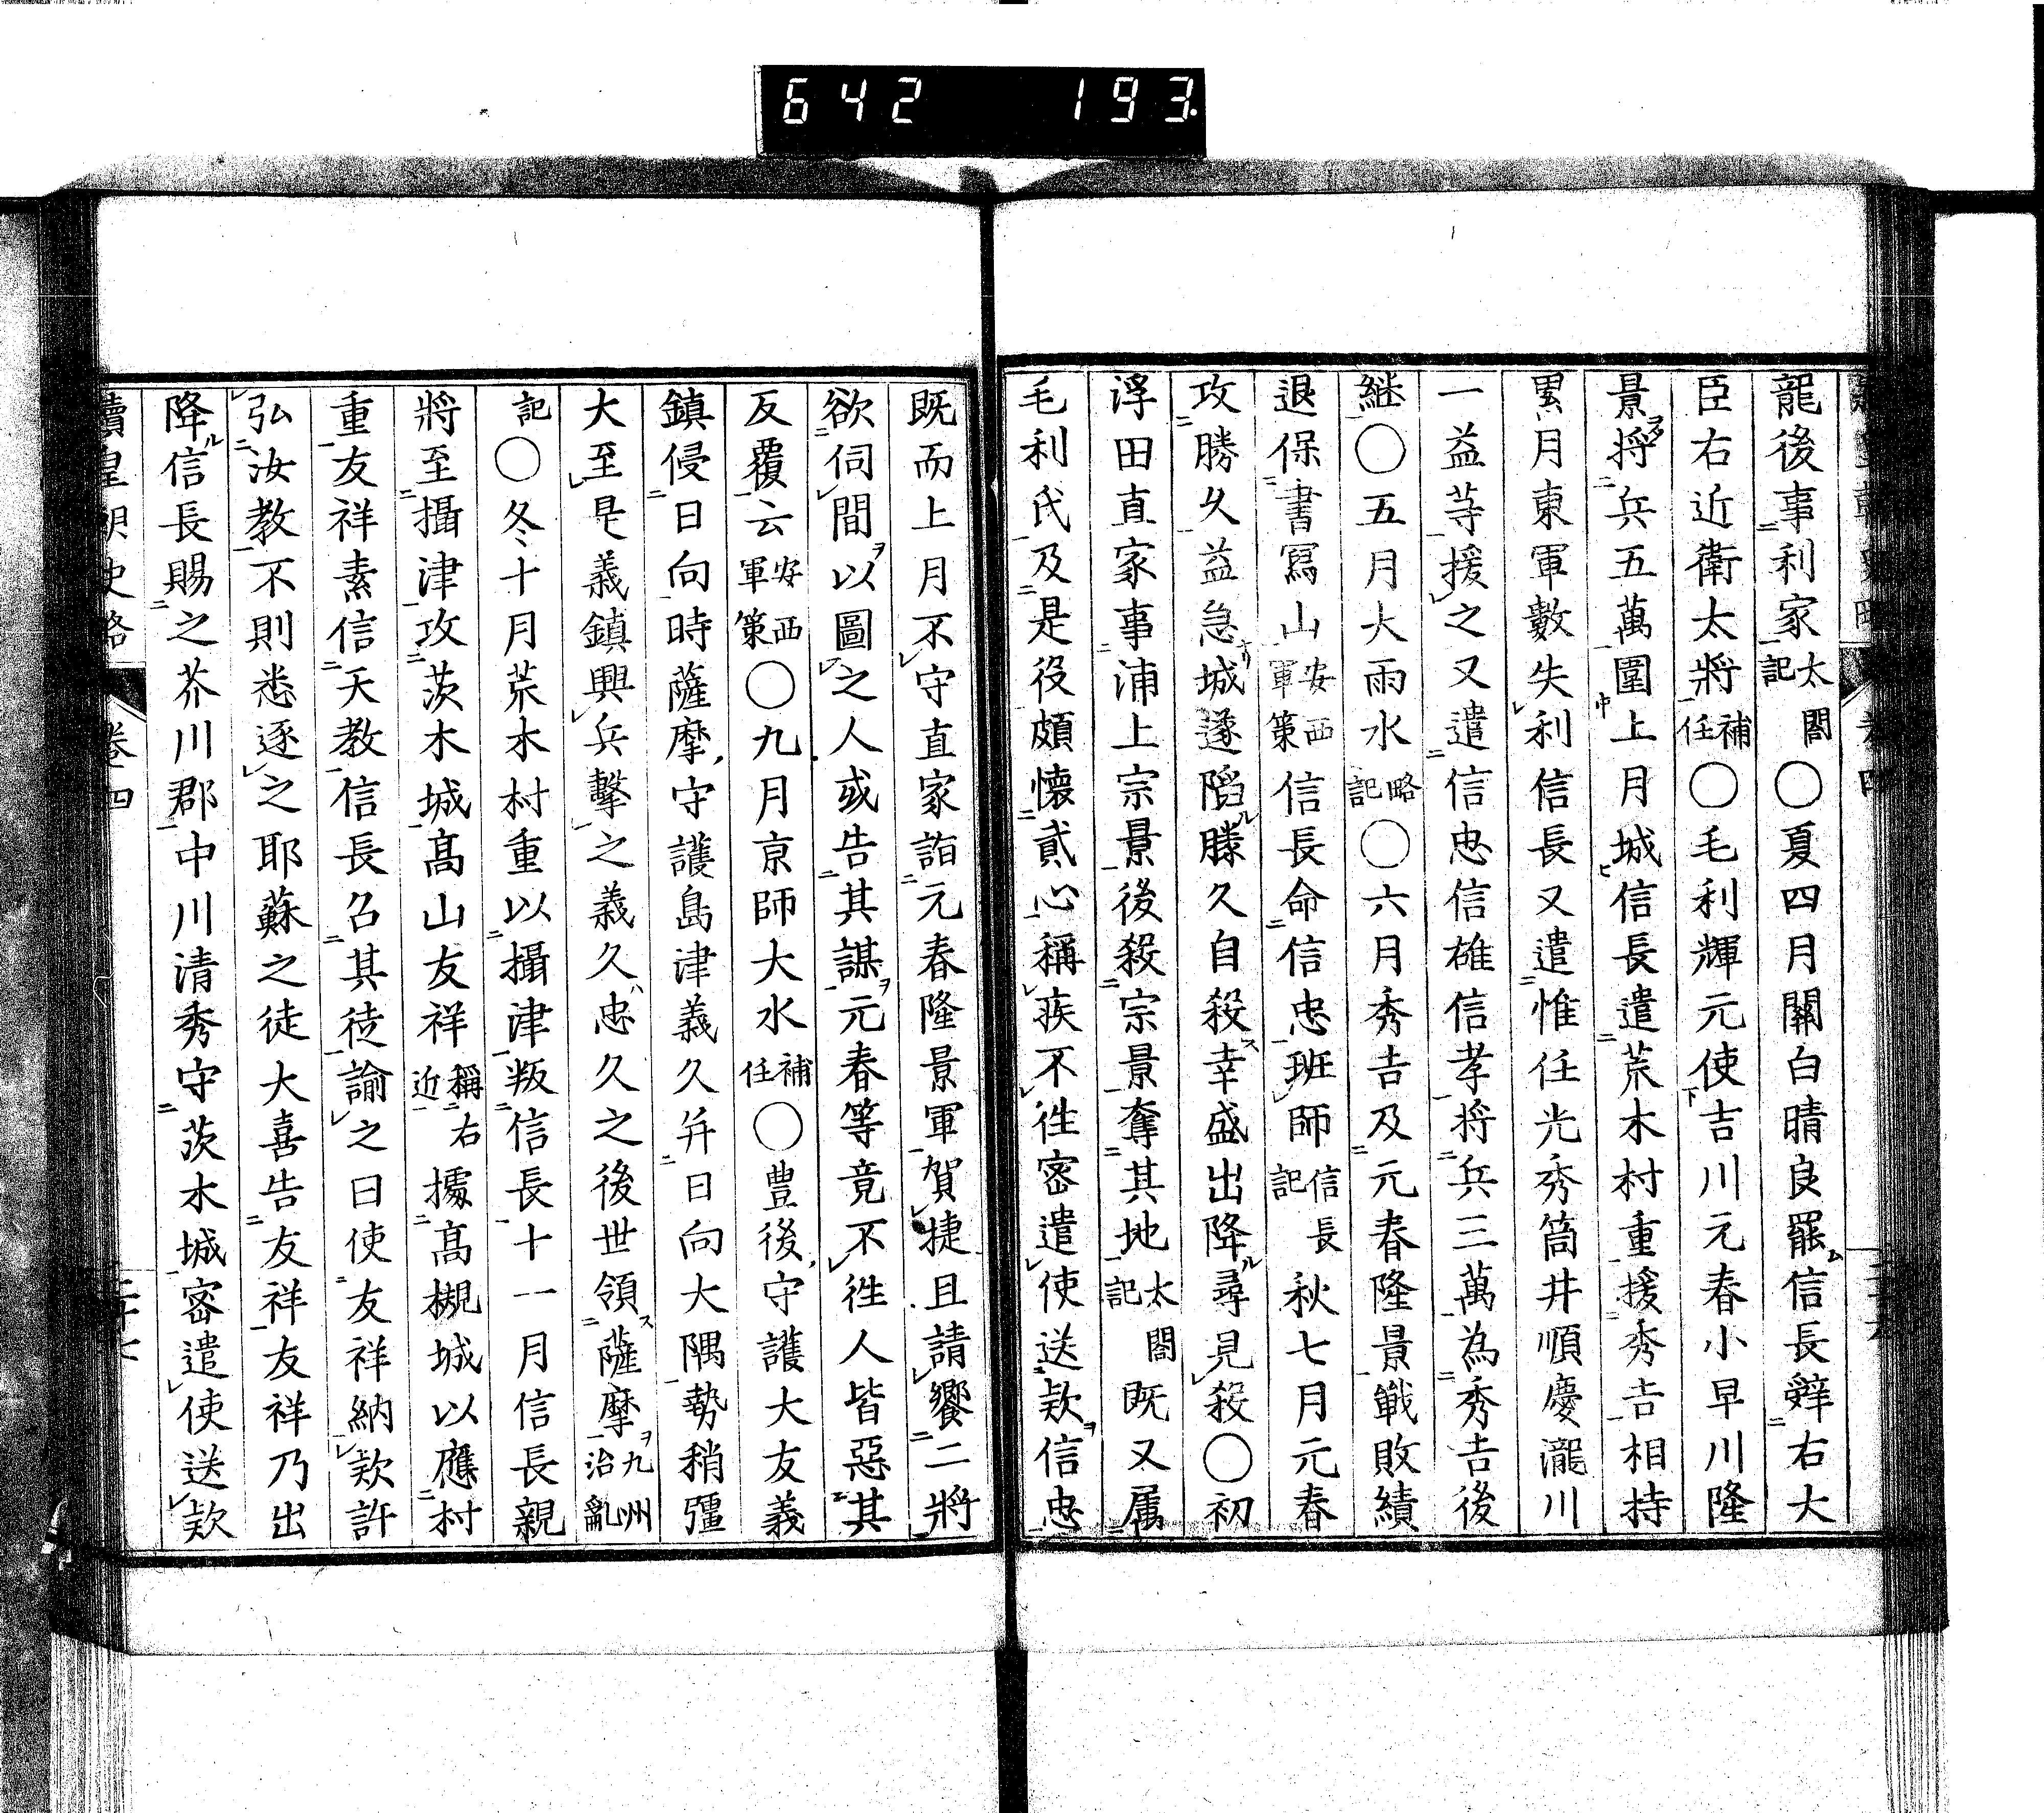 642 193
龍後事利家太閤記〇夏四月關白晴良罷信長辭右大
臣右近衛太將補任〇毛利輝元使吉川元春小早川隆
景将兵五萬圍上月城信長遣荒木村重援秀吉相持
累月東軍數失利信長又遣惟任光秀筒井順慶瀧川
一益等援之又遣信忠信雄信孝将兵三萬為秀吉後
継〇五月大雨水略記〇六月秀吉及元春隆景戰敗績
退保書寫山安西軍策信長命信忠班師信長記秋七月元春
攻勝久益急城遂陷勝久自殺幸盛出降尋見殺〇初
浮田直家事浦上宗景後殺宗景奪其地太閤記既又属
毛利氏及是役頗懷貳心稱疾不往密遣使送欵信忠
既而上月不守直家詣元春隆景軍賀捷且請饗二將
欲伺間以圖之人或告其謀元春等竟不往人皆惡其
反覆云安西軍策〇九月京師大水補任〇豊後守護大友義
鎮侵日向時薩摩守護島津義久并日向大隅勢稍彊
大至是義鎮興兵擊之義久忠久之後世領薩摩九州治亂
記〇冬十月荒木村重以攝津叛信長十一月信長親
將至攝津攻茨木城髙山友祥稱右近據髙槻城以應村
重友祥素信天教信長召其徒諭之曰使友祥納欵許
弘汝教不則悉逐之耶蘇之徒大喜告友祥友祥乃出
降信長賜之芥川郡中川清秀守茨木城密遣使送欵
續皇朝史略 卷四